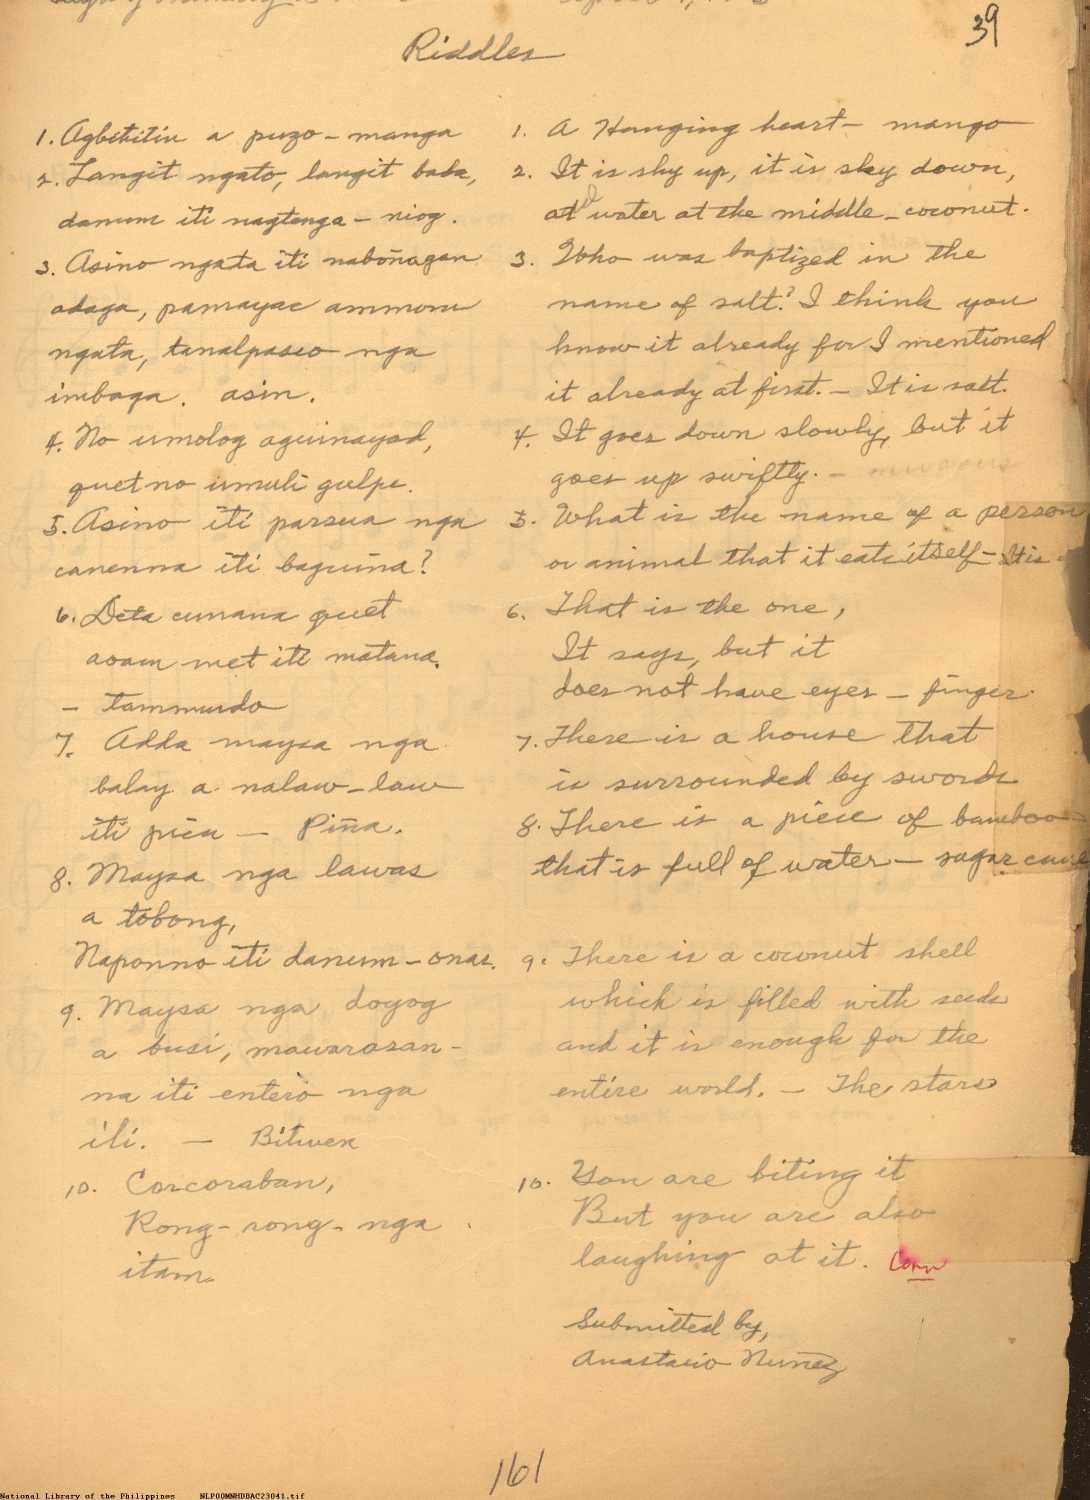 39
Riddles
1. Agbititin a puzo - manga
2. Langit ngato, langit baba,
danum iti nagtenga - niog.
3. Asino ngata iti naboñagan
adaga, pamayac ammom
ngata, tanalpasco nga
imbaga. asin.
4. No umolog aguinayad,
quet no umuli gulpe.
5. Asino iti parsua nga
canenna iti baguina?
6. Deta cunana quet
aoam met iti matana.
- tammudo
7. Adda maysa nga
balay a nalaw-law
iti pica - Piña.
8. Maysa nga lawas
a tobong,
Naponno iti danum - onas.
9. Maysa nga doyog
a busi, mawarasan-
na iti entero nga
ili. - Bituen
10. Corcoraban,
Rong-rong-nga
itam.
1. A Hanging heart - mango
2. It is sky up, it is sky down,
at water at the middle - coconut.
3. Who was baptized in the
name of salt? I think you
know it already for I mentioned
it already at first. - It is salt.
4. It goes down slowly, but it
goes up swiftly. -
5. What is the name of a person
or animal that it eats itself - It is
6. That is the one,
It says, but it
does not have eyes - finger.
7. There is a house that
is surrounded by swords
8. There is a piece of bamboo
that is full of water - sugar cane
9. There is a coconut shell
which is filled with seeds
and it is enough for the
entire world. - The stars
10. You are biting it
But you are also
laughing at it. Corn
Submitted by,
Anastacio Nuñez
161
National Library of the Philippines NLP00MNHDBAC23041.tif